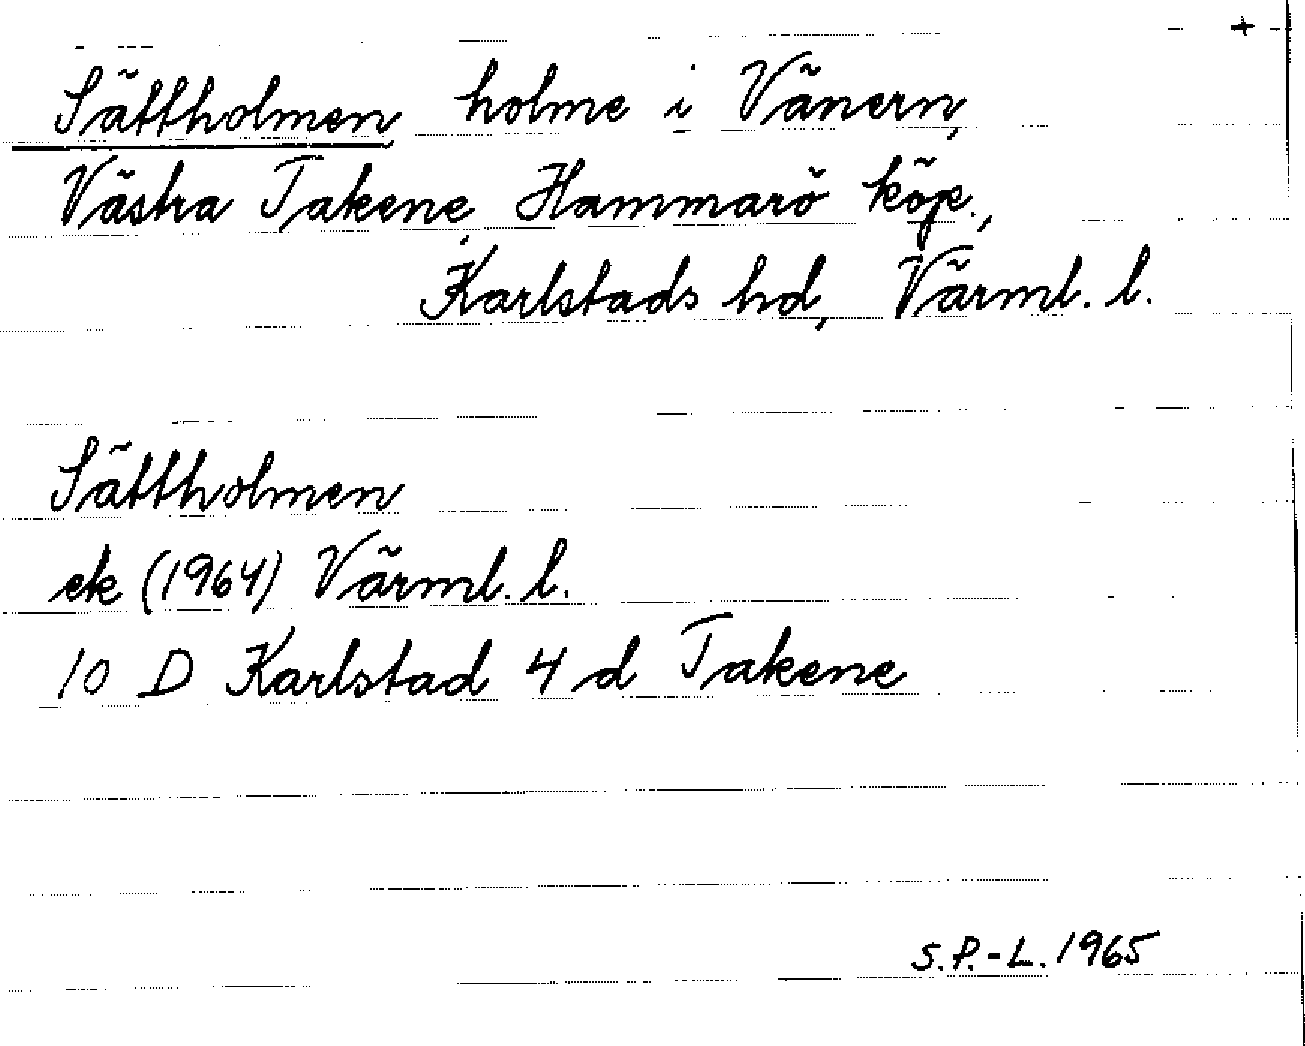 +
Sättholmen, holme i Vänern,
Västra Takene, Hammarö köp.,
Karlstads hd, Värml. l.
Sättholmen
ek (1964) Värml. l.
10 D Karlstad 4 d Takene
S.P.-L. 1965